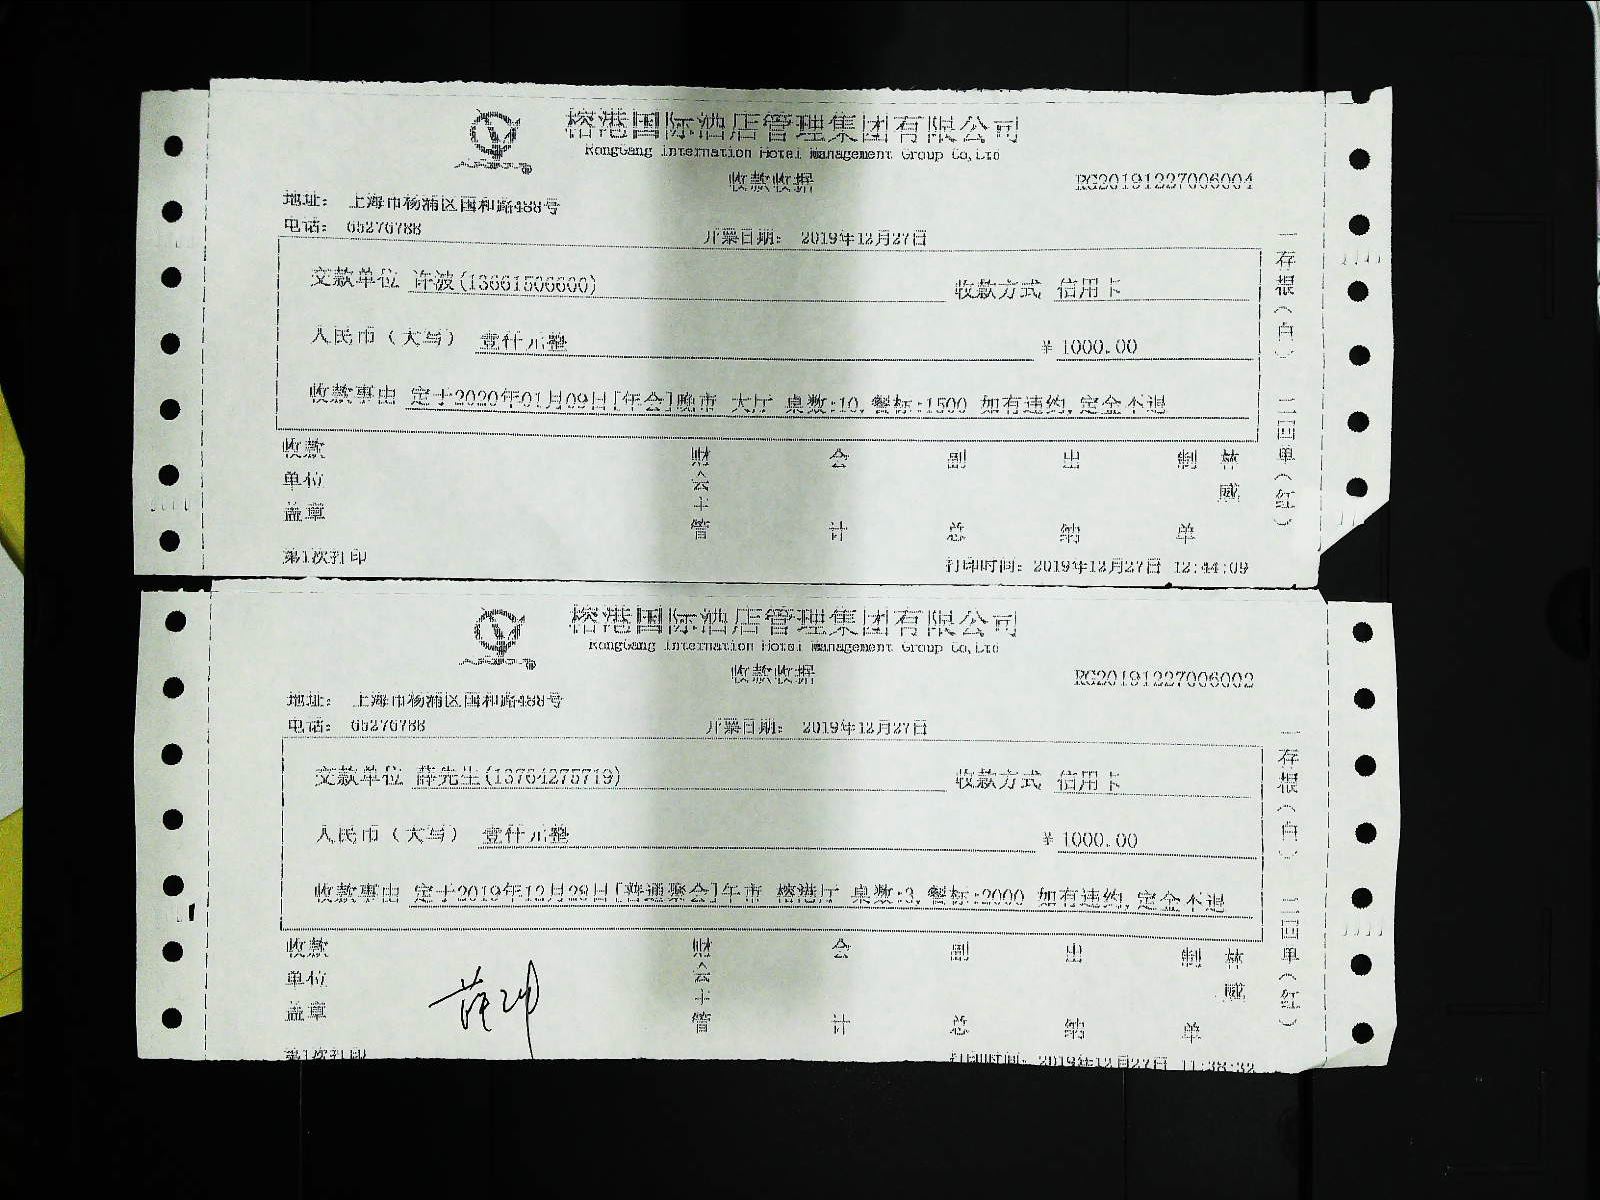 榕港国际酒店管理集团有限公司
RongGang Internation Hotel Management Group Co,Ltd
收款收据
RG20191227006004
地址： 上海市杨浦区国和路488号
电话： 65276788
开票日期： 2019年12月27日
交款单位 许波(13661506600)
收款方式 信用卡
人民币（大写） 壹仟元整
¥ 1000.00
收款事由 定于2020年01月09日[年会]晚市 大厅 桌数:10,餐标:1500 如有违约,定金不退
一存根（白） 二回单（红）
收款单位盖章
财会主管
会计
副总
出纳
制单
林威
第1次打印
打印时间： 2019年12月27日 12:44:09
榕港国际酒店管理集团有限公司
RongGang Internation Hotel Management Group Co,Ltd
收款收据
RG20191227006002
地址： 上海市杨浦区国和路488号
电话： 65276788
开票日期： 2019年12月27日
交款单位 薛先生(13764275719)
收款方式 信用卡
人民币（大写） 壹仟元整
¥ 1000.00
收款事由 定于2019年12月28日[普通聚会]午市 榕港厅 桌数:3,餐标:2000 如有违约,定金不退
一存根（白） 二回单（红）
收款单位盖章
财会主管
会计
副总
出纳
制单
林威
第1次打印
打印时间： 2019年12月27日 11:38:32